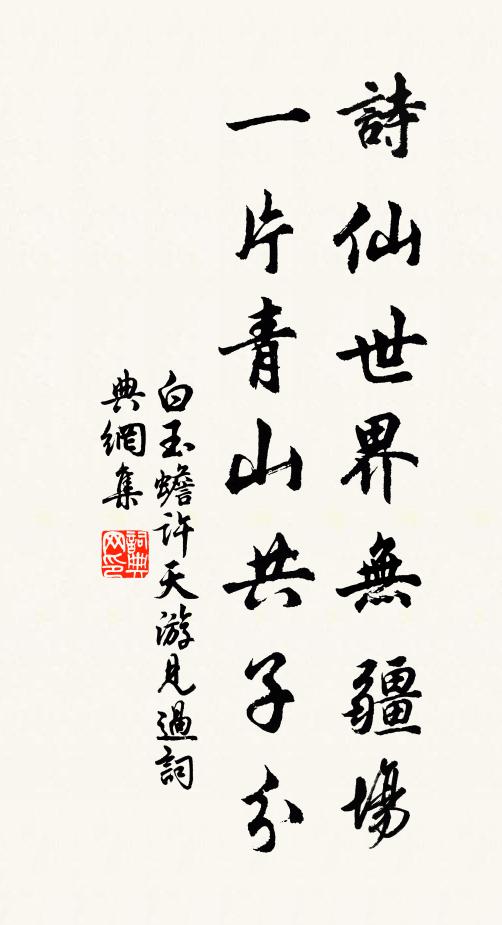 詩仙世界無疆場
一片青山共子分
白玉蟾许天游見過詞
典網集
詞典
网印